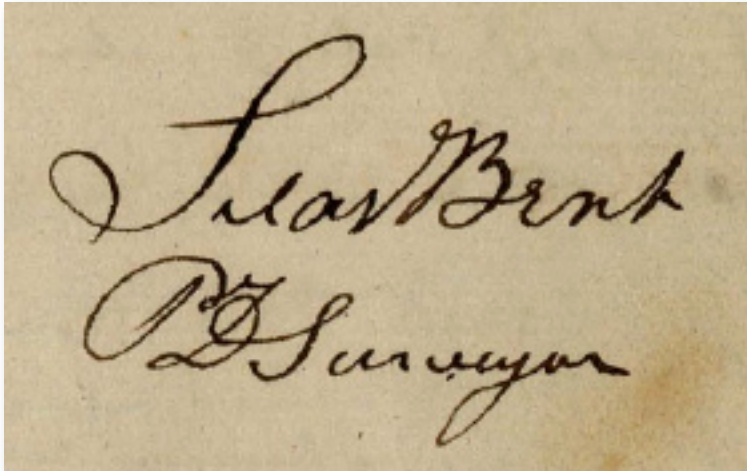 Silas Bent
P.D Surveyor